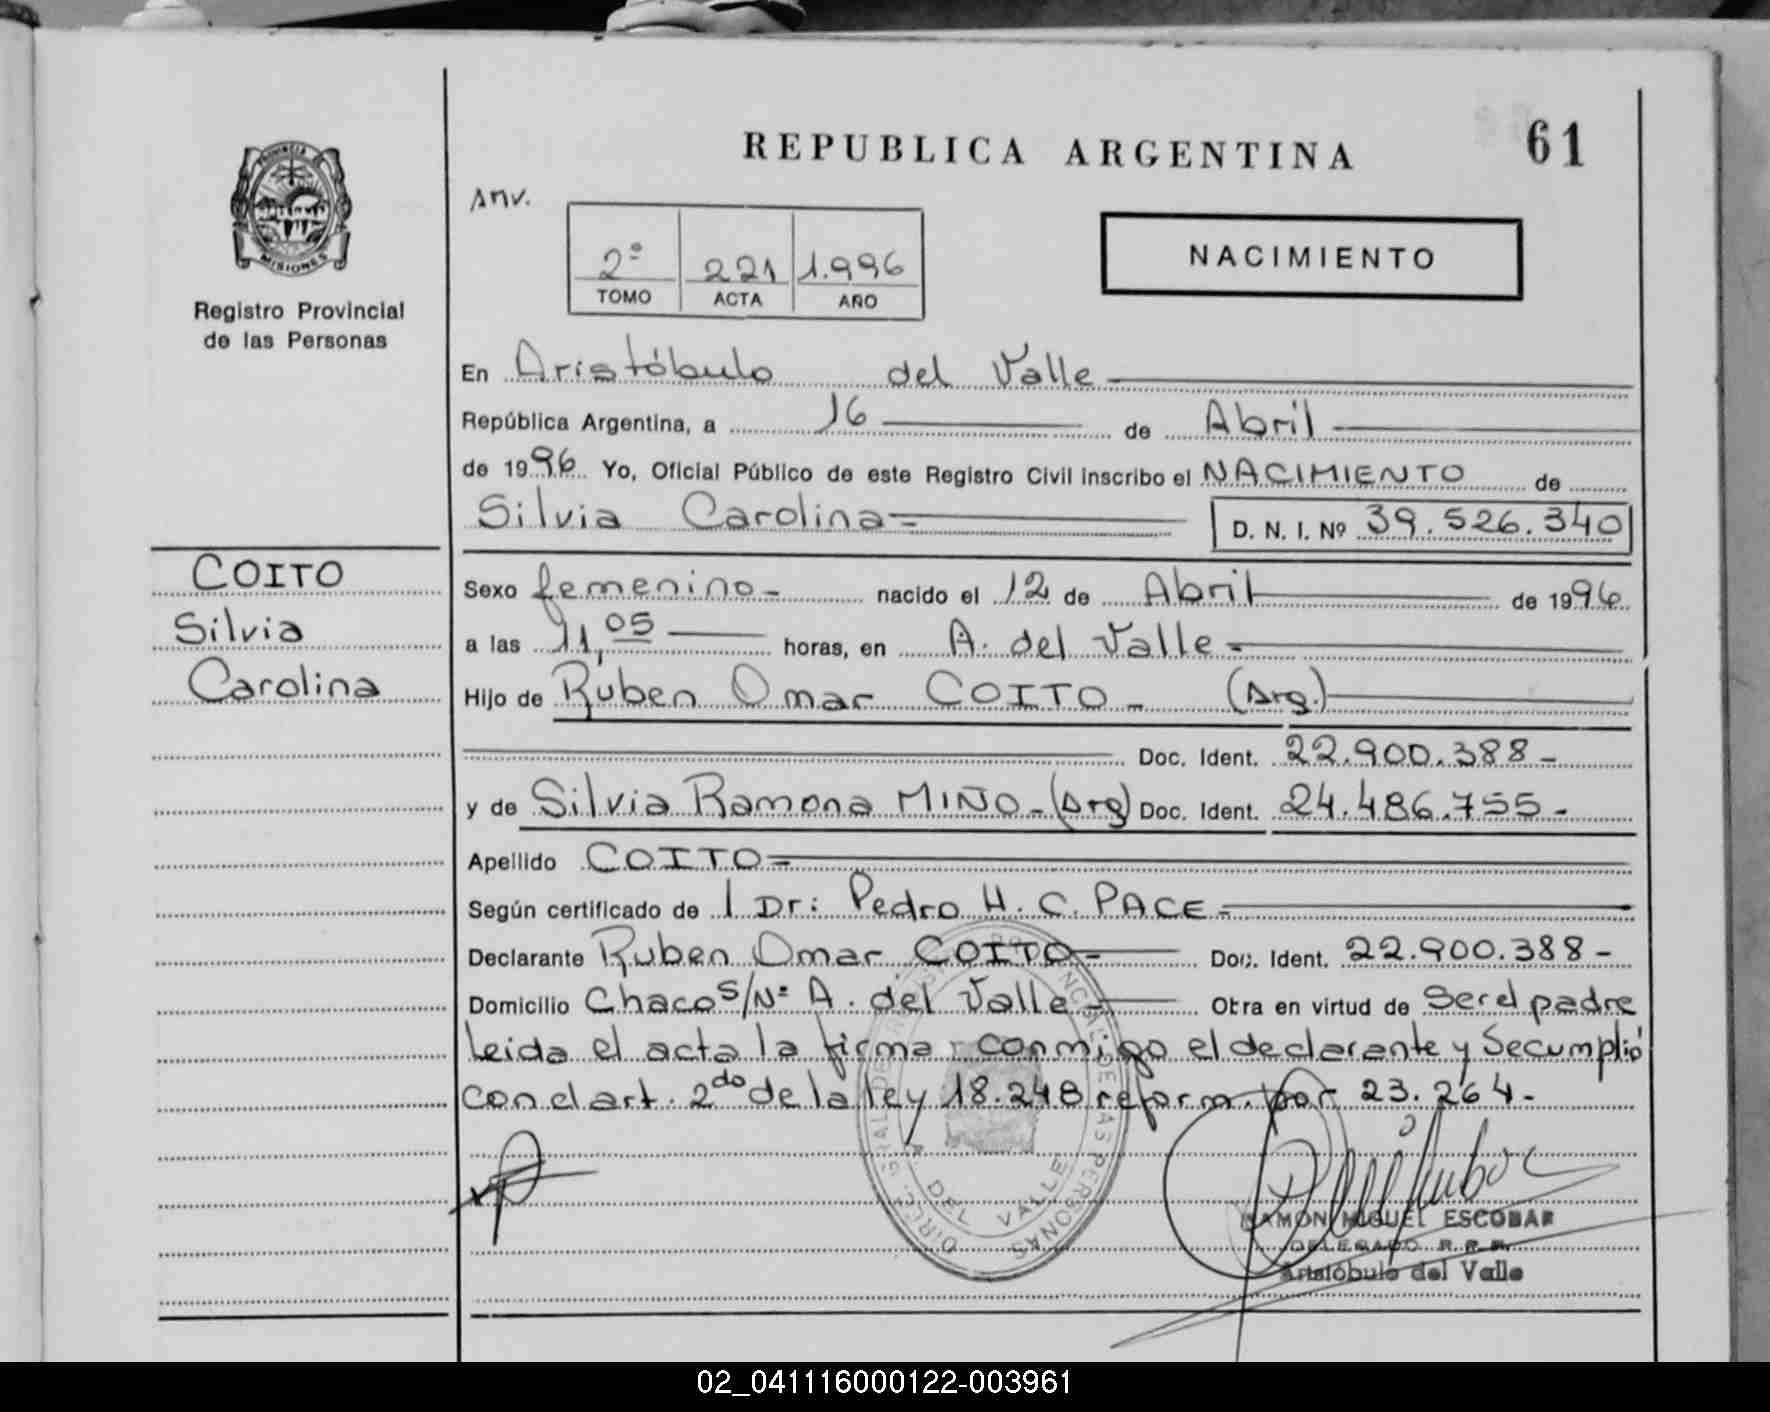 REPUBLICA ARGENTINA
61
PROVINCIA DE
MISIONES
Registro Provincial
de las Personas
Anv.
2º 221 1.996
TOMO ACTA AÑO
NACIMIENTO
En Aristóbulo del Valle
República Argentina, a 16 de Abril
de 1996 Yo, Oficial Público de este Registro Civil inscribo el NACIMIENTO de
Silvia Carolina=
D. N. I. Nº 39.526.340
COITO
Silvia
Carolina
Sexo femenino- nacido el 12 de Abril de 1996
a las 11,05 horas, en A. del Valle-
Hijo de Ruben Omar COITO - (Arg.)
Doc. Ident. 22.900.388-
y de Silvia Ramona MIÑO-(Arg) Doc. Ident. 24.486.755-
Apellido COITO=
Según certificado de l Dr: Pedro H. C. PACE-
Declarante Ruben Omar COITO- Doc. Ident. 22.900.388-
Domicilio Chaco S/Nº A. del Valle- Obra en virtud de Ser el padre
Leida el acta la firma conmigo el declarante y Secumplió
con el art. 2do de la ley 18.248 reform. por 23.264-
DIREC. GRAL DE PROVINCIAL DE LAS PERSONAS
A. DEL VALLE
RAMON MIGUEL ESCOBAR
DELEGADO R.P.P.
Aristóbulo del Valle
02_041116000122-003961